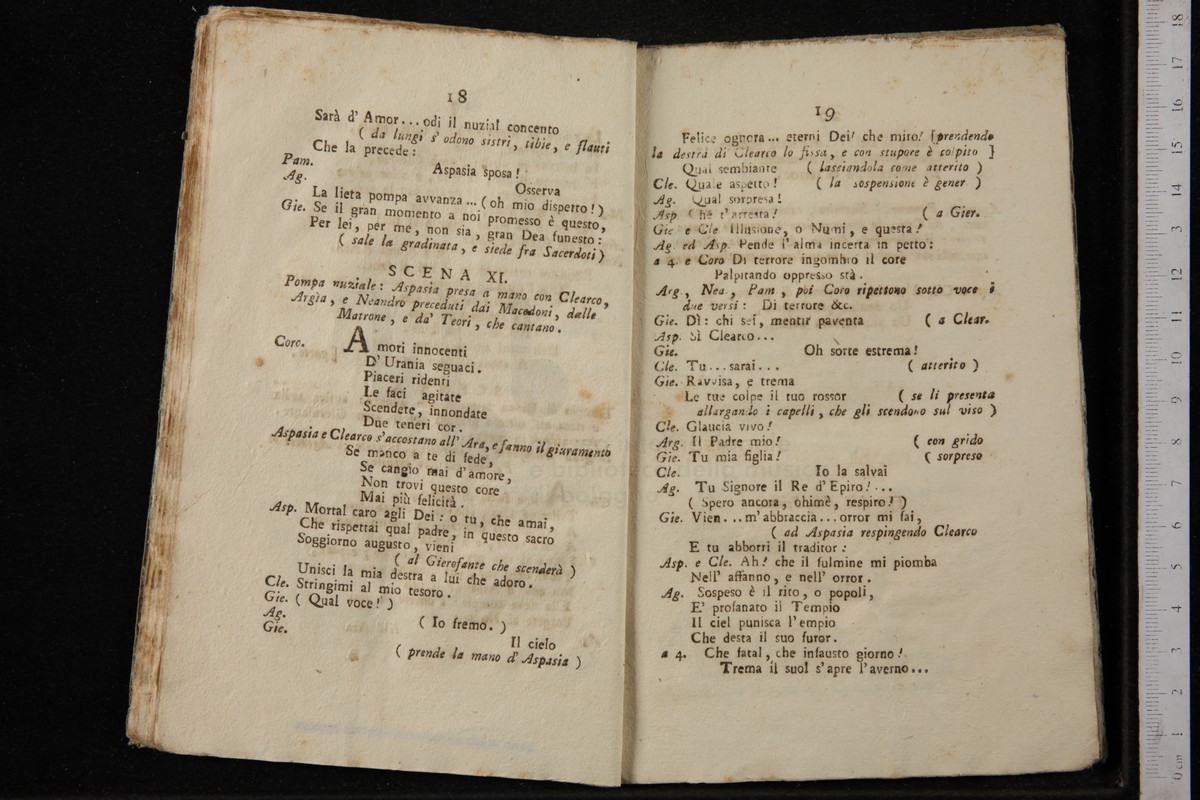 18
Sarà d' Amor... odi il nuzial concento
( da lungi s' odono sistri, tibie, e flauti
Che la precede:
Pam. Aspasia sposa!
Ag. Osserva
La lieta pompa avvanza... ( oh mio dispetto! )
Gie. Se il gran momento a noi promesso è questo,
Per lei, per me, non sia, gran Dea funesto:
( sale la gradinata, e siede fra Sacerdoti )
SCENA XI.
Pompa nuziale: Aspasia presa a mano con Clearco,
Argia, e Neandro preceduti dai Macedoni, dalle
Matrone, e da' Teori, che cantano.
Coro. Amori innocenti
D' Urania seguaci.
Piaceri ridenti
Le faci agitate
Scendete, innondate
Due teneri cor.
Aspasia e Clearco s'accostano all' Ara, e fanno il giuramento
Se manco a te di fede,
Se cangio mai d'amore,
Non trovi questo core
Mai più felicità.
Asp. Mortal caro agli Dei: o tu, che amai,
Che rispettai qual padre, in questo sacro
Soggiorno augusto, vieni
( al Gierofante che scenderà )
Unisci la mia destra a lui che adoro.
Cle. Stringimi al mio tesoro.
Gie. ( Qual voce! )
Ag. ( Io fremo. )
Gie. Il cielo
( prende la mano d' Aspasia )
19
Felice ognora... eterni Dei! che miro! [prendendo
la destra di Clearco lo fissa, e con stupore è colpito ]
Qual sembiante ( lasciandola come atterito )
Cle. Quale aspetto! ( la sospensione è gener )
Ag. Qual sorpresa!
Asp. Che t'arresta! ( a Gier.
Gie e Cle Illusione, o Numi, e questa!
Ag. ed Asp. Pende l'alma incerta in petto:
a 4. e Coro Di terrore ingombro il core
Palpitando oppresso stà.
Arg., Nea., Pam, poi Coro ripettono sotto voce i
due versi: Di terrore &c.
Gie. Dì: chi sei, mentir paventa ( a Clear.
Asp. Sì Clearco...
Gie. Oh sorte estrema!
Cle. Tu... sarai... ( atterito )
Gie. Ravvisa, e trema
Le tue colpe il tuo rossor ( se li presenta
allargando i capelli, che gli scendono sul viso )
Cle. Glaucia vivo!
Arg. Il Padre mio! ( con grido
Gie. Tu mia figlia! ( sorpreso
Cle. Io la salvai
Ag. Tu Signore il Re d'Epiro!...
( Spero ancora, ohimè, respiro! )
Gie. Vien... m'abbraccia... orror mi fai,
( ad Aspasia respingendo Clearco
E tu abborri il traditor:
Asp. e Cle. Ah! che il fulmine mi piomba
Nell' affanno, e nell' orror.
Ag. Sospeso è il rito, o popoli,
E' profanato il Tempio
Il ciel punisca l'empio
Che desta il suo furor.
a 4. Che fatal, che infausto giorno!
Trema il suol s'apre l'averno...